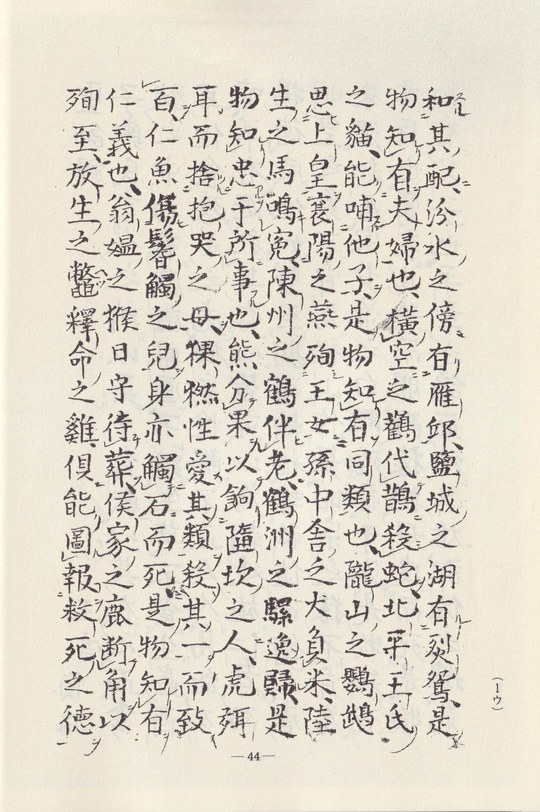 和其配、汾水之傍有雁邱、鹽城之湖有烈鴛、是
物知有夫婦也、橫空之鸛代鵲殺蛇、北平王氏
之貓、能哺他子、是物知有同類也、隴山之鸚鵡
思上皇、襄陽之燕殉王女、孫中舍之犬負米、陸
生之馬鳴冤、陳州之鶴伴老、鶴洲之騾逸歸、是
物知忠于所事也、熊分果以餉墮坎之人、虎弭
耳而捨抱哭之母、猓然性愛其類、殺其一而致
百、仁魚傷鬐觸之兒、身亦觸石而死、是物知有
仁義也、翁媼之猴日守待葬、侯家之鹿斷角以
殉、至放生之鼈、釋命之雞、俱能圖報救死之德
(1ウ)
— 44 —